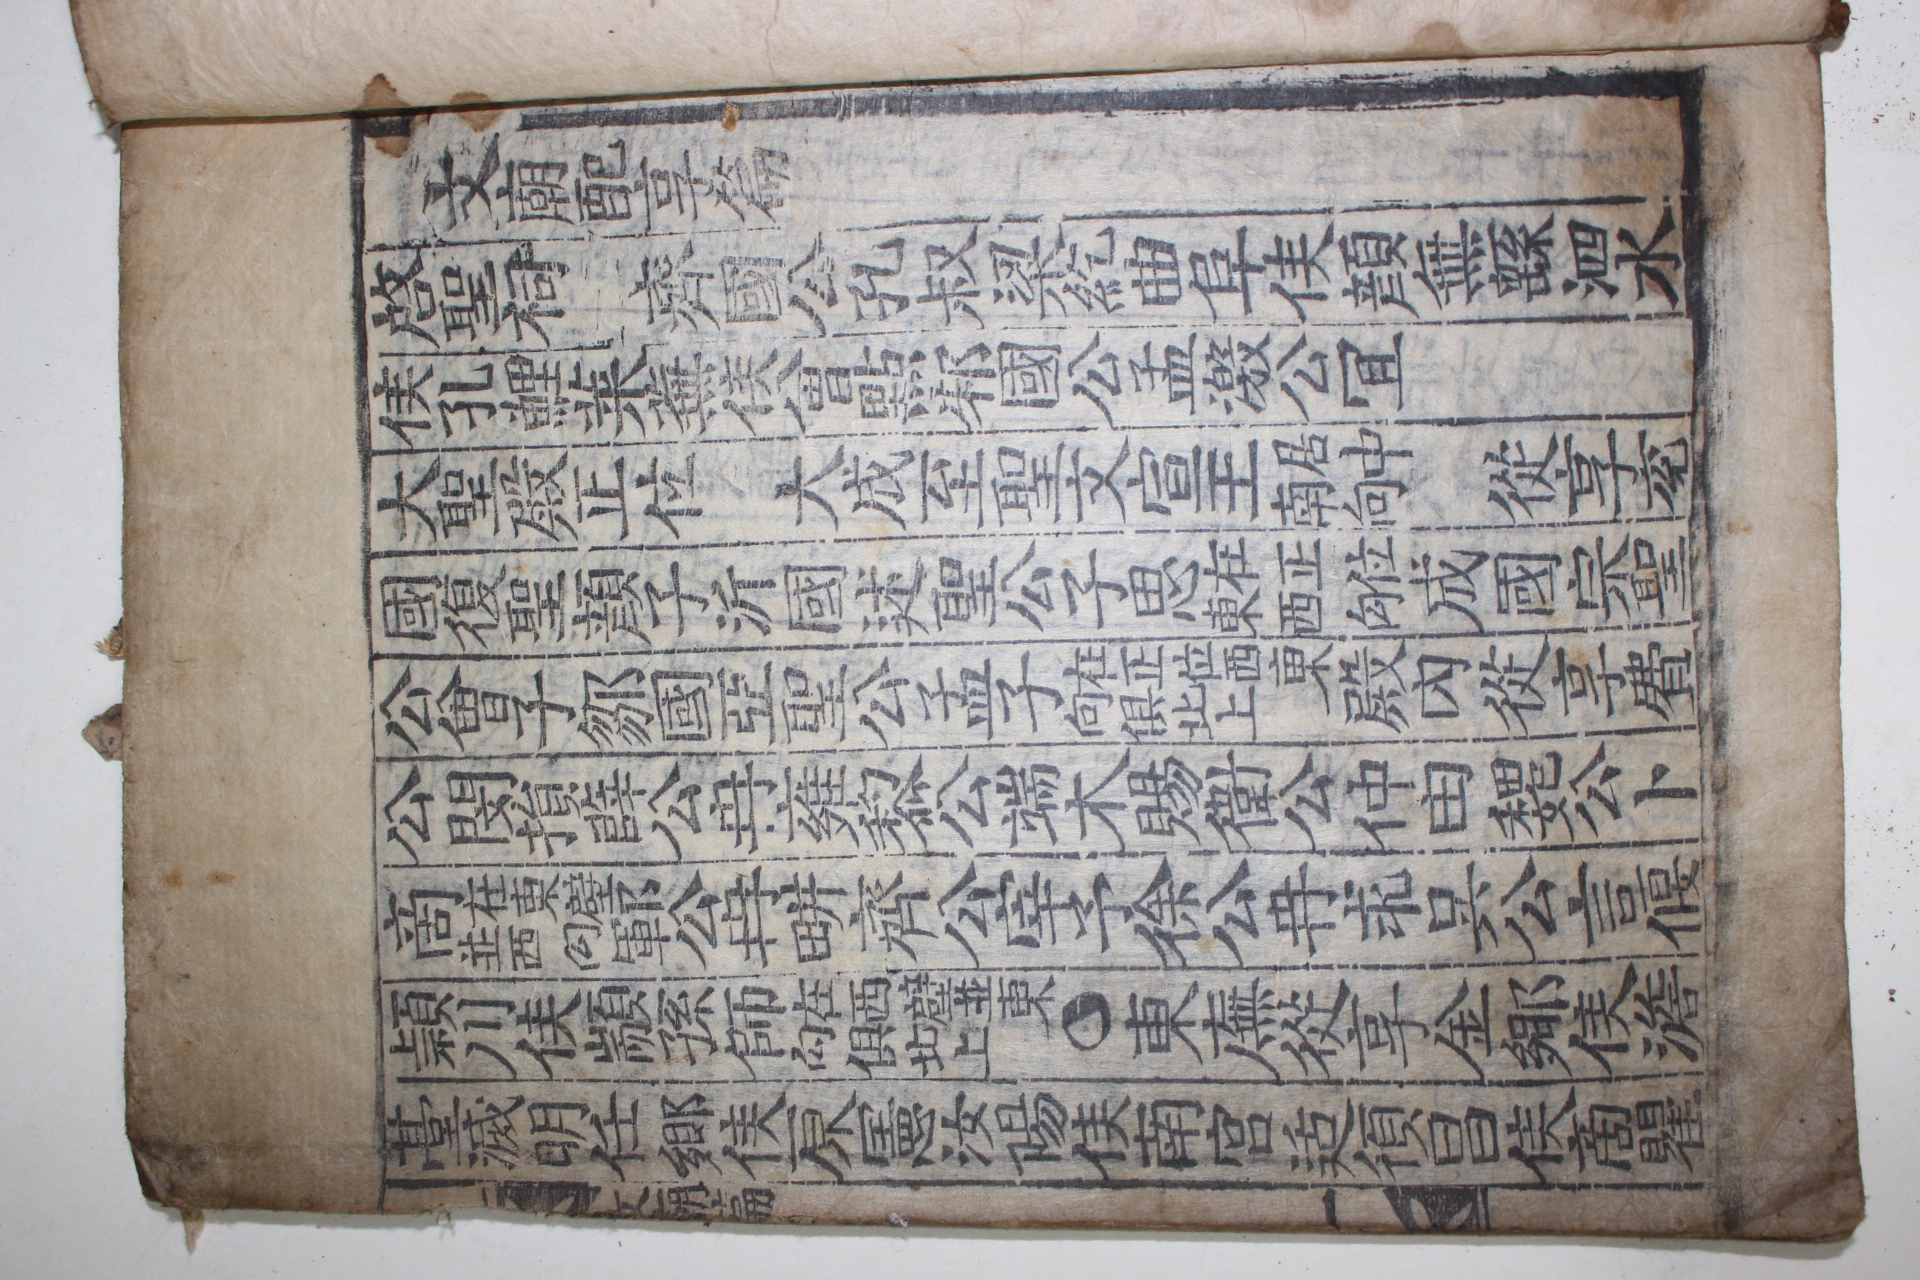 文廟配享篇
啓聖祠 齊國公孔叔梁紇曲阜侯顏無繇泗水
侯孔鯉萊蕪侯曾點邾國公孟激公宜
大聖殿正位 大成至聖文宣王居中南向 從享兖
國復聖顏子沂國述聖公子思在正位東西向成國宗聖
公曾子鄒國亞聖公孟子在正位西東向俱北上殿內從享費
公閔損薛公冉雍黎公端木賜衛公仲由魏公卜
商在東壁並西向鄆公冉耕齊公宰予徐公冉求吳公言偃
穎川侯顓孫師在西壁並東向俱北上●東廡從享金鄉侯澹
臺滅明任鄉侯原憲汝陽侯南宮适須昌侯商瞿
文廟篇